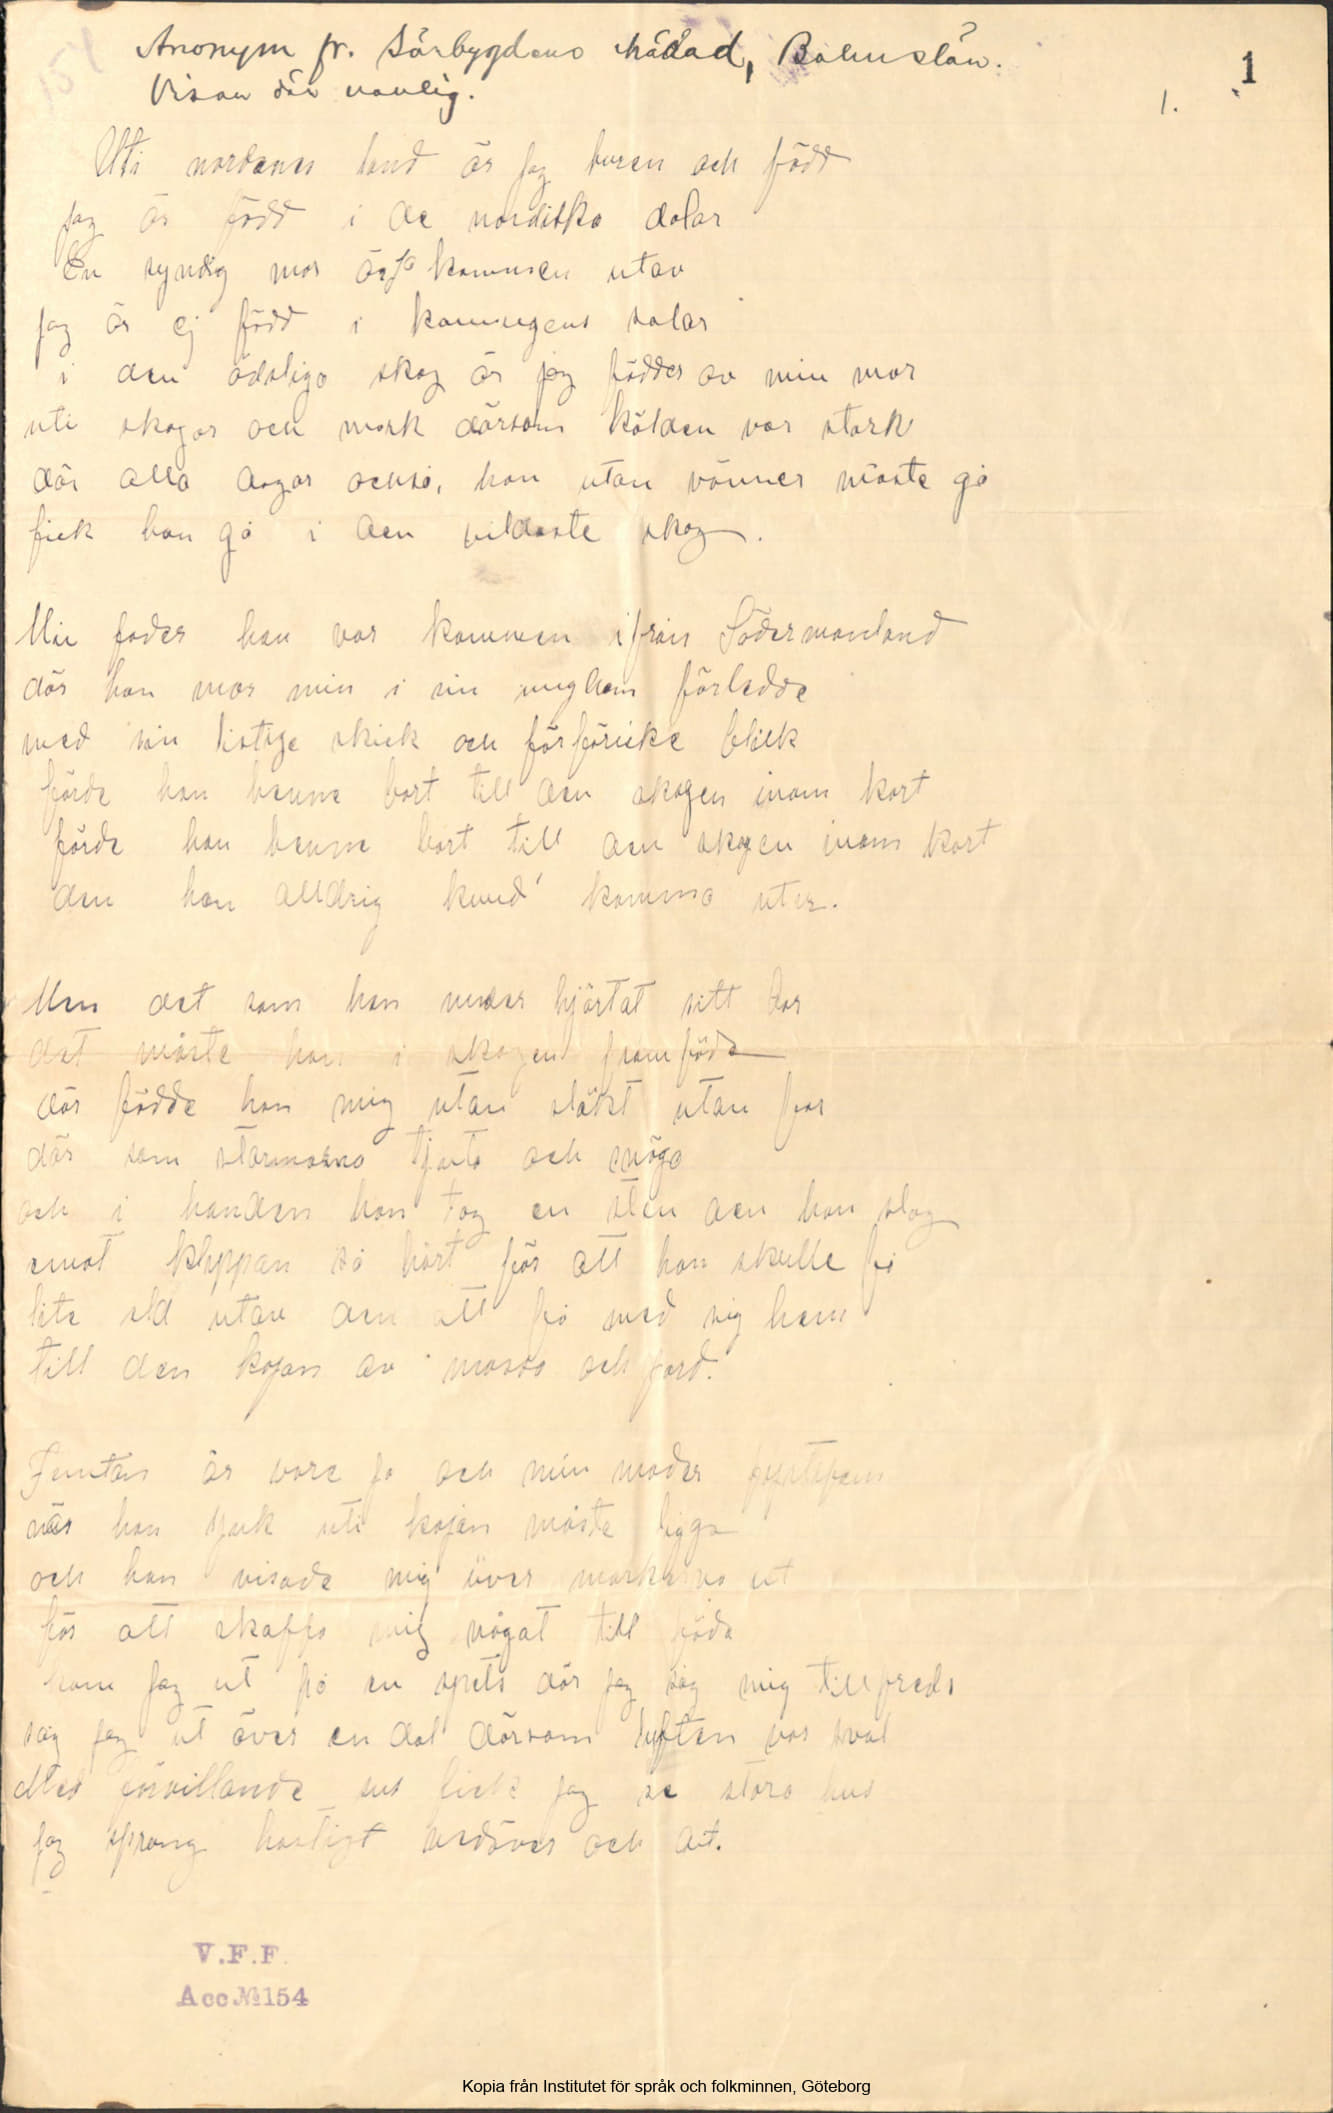 154
Anonym fr. Sörbygdens härad, Bohuslän.
Visan där vanlig.
1
1.
Uti nordanes land är jag buren och född
jag är född i de nordiska dalar
En syndig mor är ja kommen utav
jag är ej född i konungens salar
i den ödsliga skog är jag födder av min mor
uti skogar och mark därsom kölden var stark
där alla dagar också, hon utan vänner måste gå
fick hon gå i den vildaste skog.
Min fader han var kommen ifrån Södermanland
där han mor min i sin ungdom förledde
med sin listige skick och förföriske blick
förde han henne bort till den skogen inom kort
förde han henne bort till den skogen inom kort
den hon alldrig kund' komma utur.
Men det som hon under hjärtat sitt bar
det måste hon i skogen framföda
där födde hon mig utan släkt utan far
där som stormarna tjuta och snöga
och i handen hon tog en sten den hon slog
emot klyppan så hårt för att hon skulle få
lite eld utav den att få med sig hem
till den kojan av mossa och jord.
Femton år vore ja och min moder
när hon sjuk uti kojan måste ligga
och hon visade mig över markerna ut
för att skaffa mig något till föda
kom jag ut på en spets där jag såg mig tillfreds
såg jag ut över en dal därsom luften var sval
Med förvillande sus fick jag se stora hus
jag sprang hastigt nedöver och dit.
V.F.F.
Acc № 154
Kopia från Institutet för språk och folkminnen, Göteborg